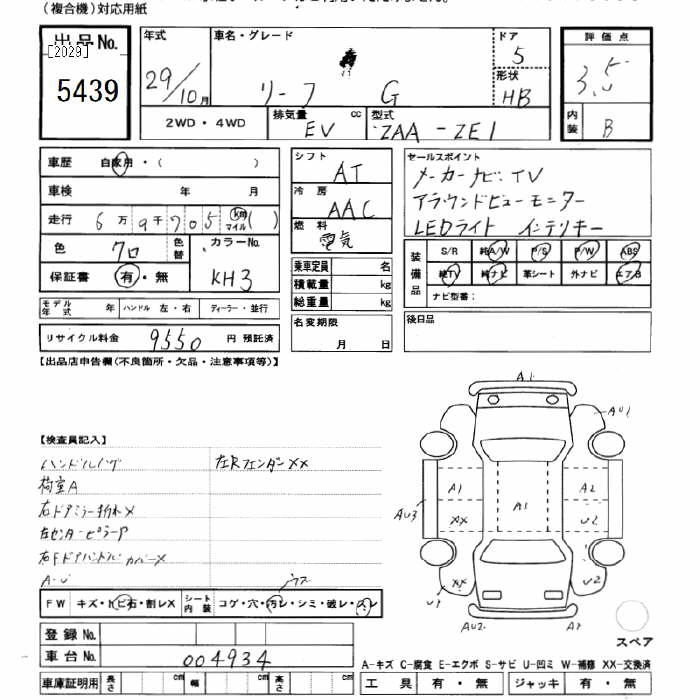 (複合機)対応用紙
出品No.
[2029]
5439
年式
29/10月
車名・グレード
リーフ G
ドア
5
形状
HB
評価点
3.5
内装
B
2WD・4WD
排気量
EV
cc
型式
ZAA-ZE1
車歴 自家用・( )
車検 年 月
走行 6万9千705 km マイル ( )
色 クロ 色替
カラーNo.
KH3
保証書 有・無
モデル年式 年 ハンドル 左・右 ディーラー・並行
リサイクル料金 9550 円 預託済
シフト
AT
冷房
AAC
燃料
電気
乗車定員 名
積載量 kg
総重量 kg
名変期限
月 日
セールスポイント
メーカーナビ・TV
アラウンドビューモニター
LEDライト インテリキー
装備品
S/R 純A/W P/S P/W ABS
純TV 純ナビ 革シート 外ナビ エアB
ナビ型番:
後日品
【出品店申告欄(不良箇所・欠品・注意事項等)】
【検査員記入】
左RフェンダーXX
荷室A
右ドアミラー折れ×
左センターピラーP
右Fドアハンドルカバー×
A・U
FW キズ・トビ石・割レX
シート内装 コゲ・穴・汚レ・シミ・破レ・スレ
登録No.
車台No. 004934
車庫証明用 長さ cm 幅 cm 高さ cm
A1
AU1
A1
A1
A2
AU3
XX
U2
XX
U2
AU2
スペア
A-キズ C-腐食 E-エクボ S-サビ U-凹ミ W-補修 XX-交換済
工具 有・無 ジャッキ 有・無